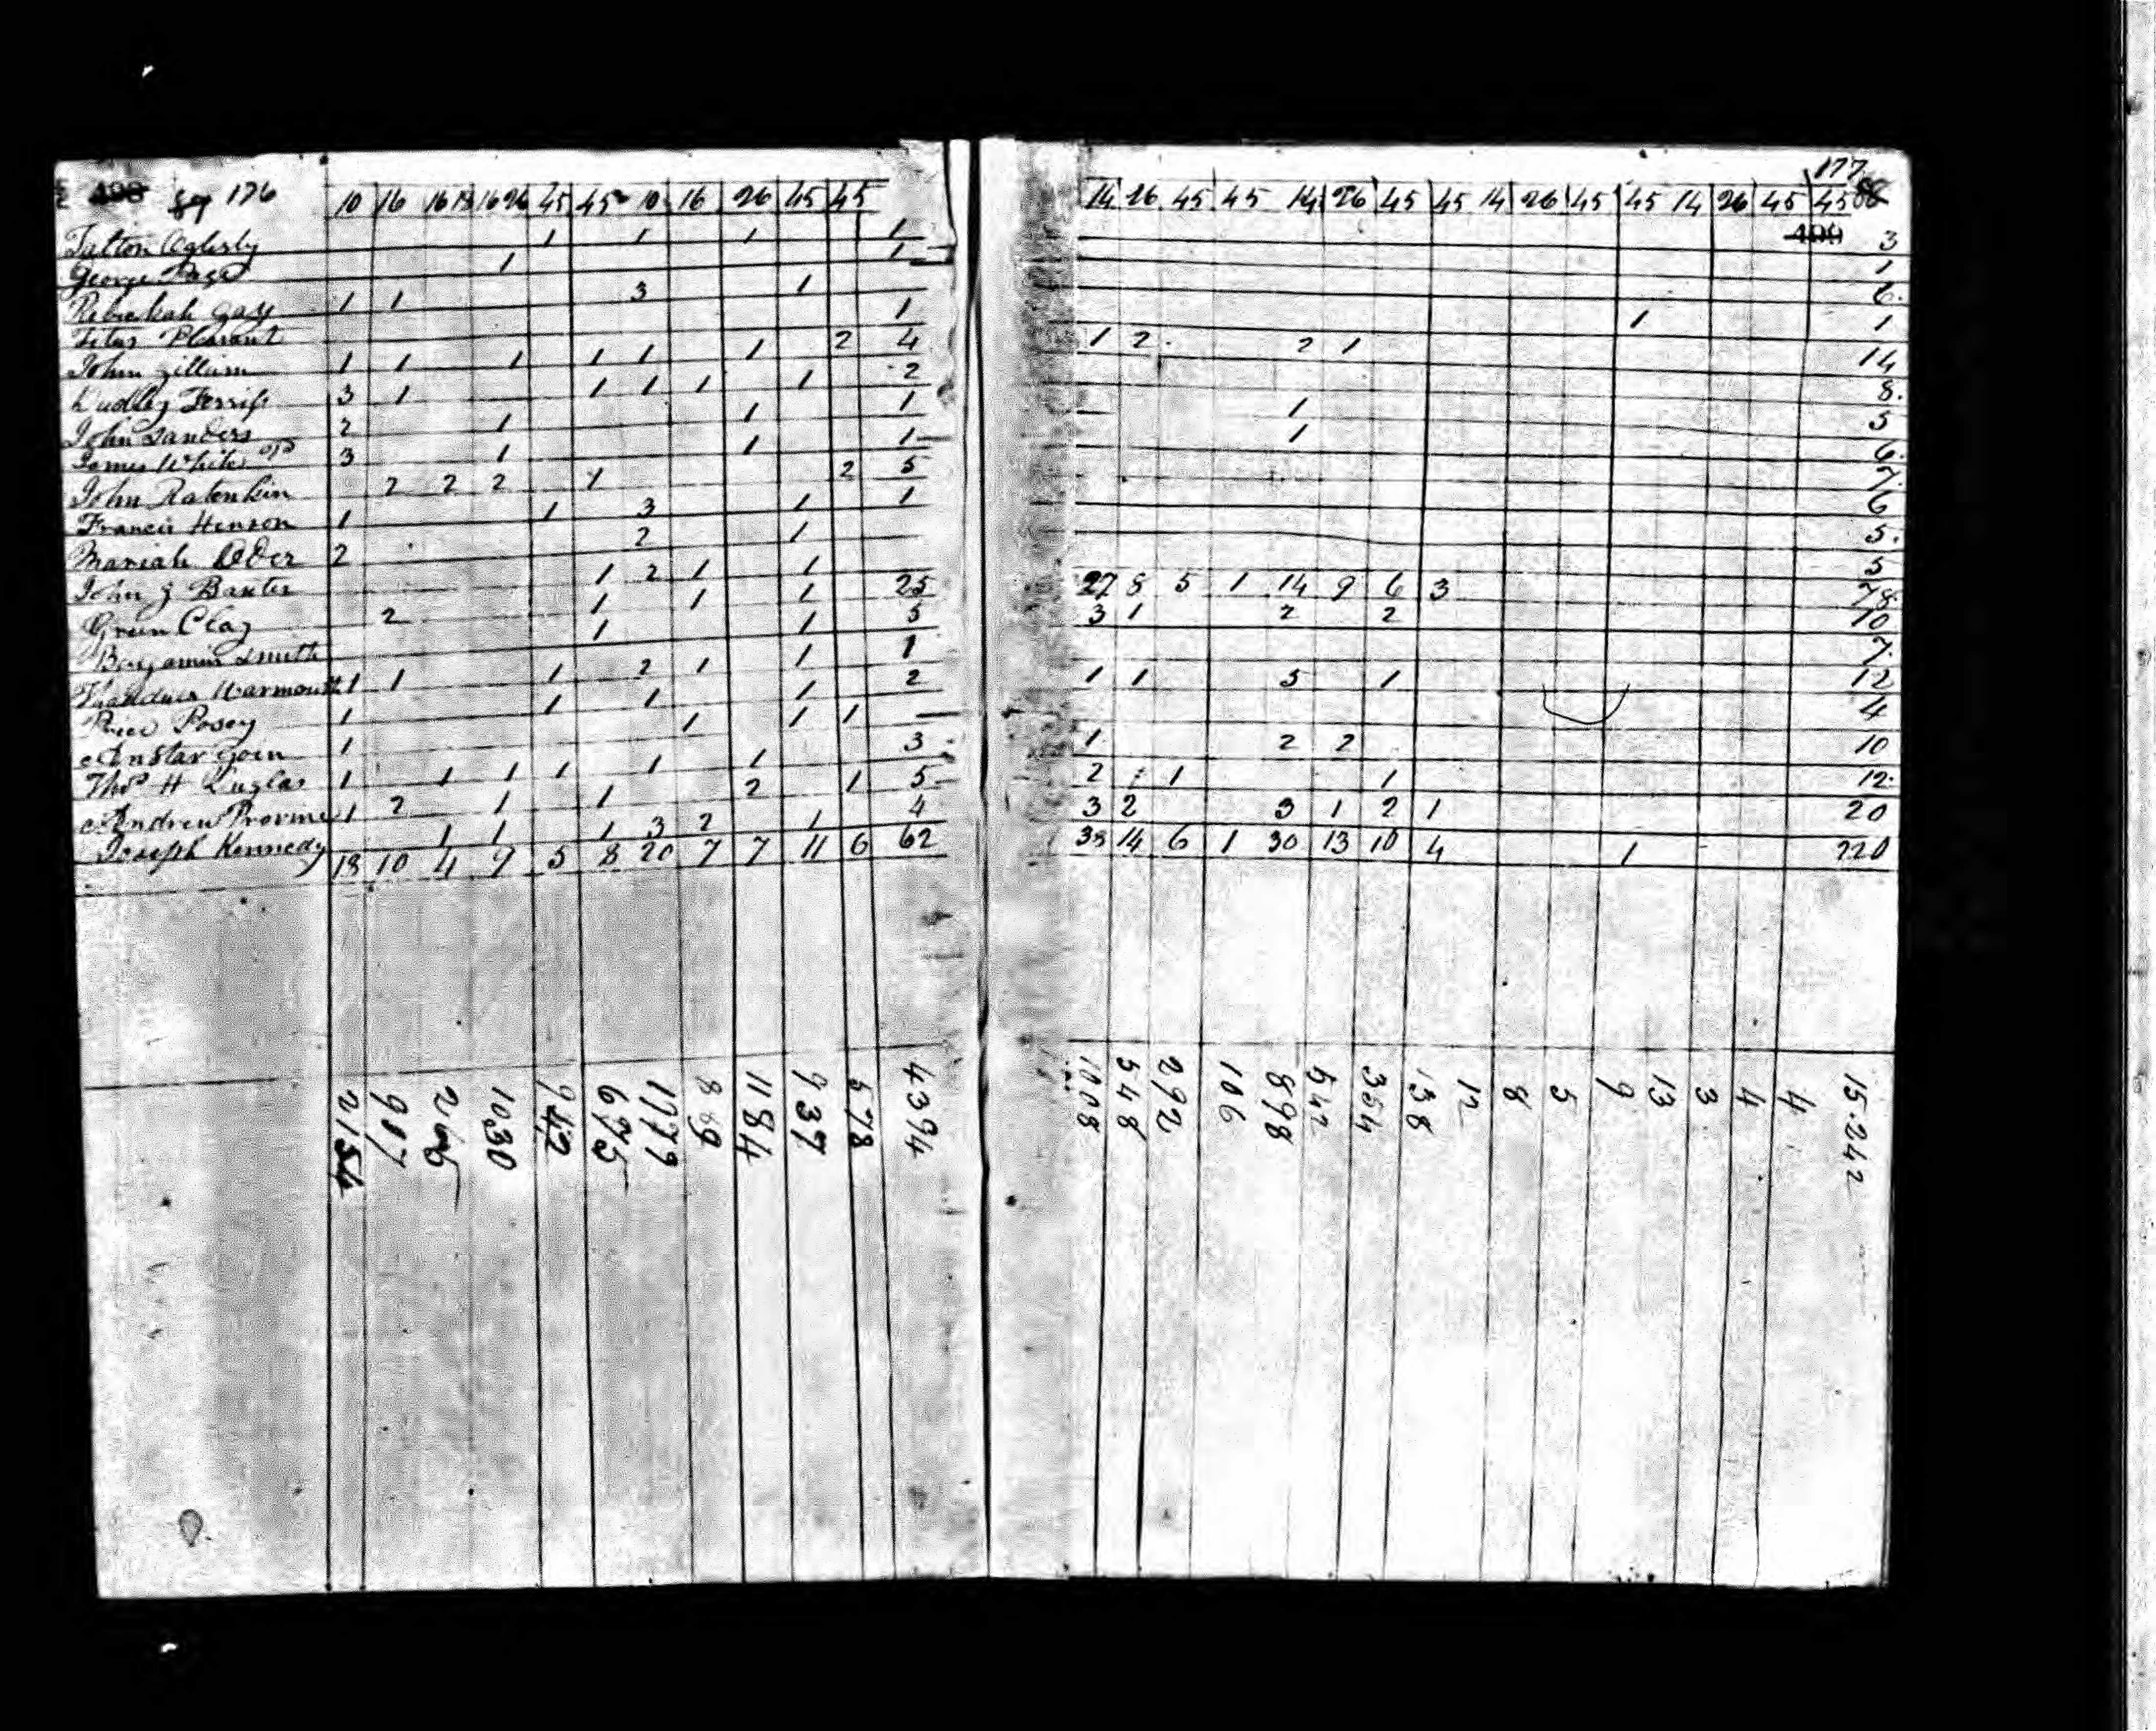 499 87 176
10 16 16 18 16 26 45 45 10 16 26 45 45
Talton Oglesby 1 1 1 1
George Page 1 1
Rebeckah Gay 1 1 3 1
Titus Pleasant 1
John Gillum 1 1 1 1 1 1 2 4
Dudley Ferriss 3 1 1 1 1 1 2
John Sanders 2 1 1 1
James White 3 1 1 1
John Ratenkin 2 2 2 1 2 5
Francis Henson 1 1 3 1 1
Mariah 2 2 1
John J Baxter 1 2 1 1
Green Clay 1 1 1 25
Benjamin Smith 2 1 1 5
Warmouth 1 1 1 2 1 1 1
Price Posey 1 1 1 1 2
Anstar Goen 1 1 1 1
Thos H Duglas 1 1 1 1 1 1 3
Andrew 1 2 1 1 2 1 5
Joseph Kennedy 1 1 1 3 2 1 4
18 10 4 9 5 8 20 7 7 11 6 62
2154 907 1030 942 675 1779 889 1184 937 578 4394
177
14 26 45 45 14 26 45 45 14 26 45 45 14 26 45 45 88
499 3
1
6
1 1
1 2 2 1 14
8
1 5
1 6
7
6
5
5
27 8 5 1 14 9 6 3 78
3 1 2 2 10
7
1 1 5 1 12
4
1 2 2 10
2 1 1 12
3 2 3 1 2 1 20
38 14 6 1 30 13 10 4 1 220
1008 548 292 106 898 542 354 138 12 8 5 9 13 3 4 4 15.242